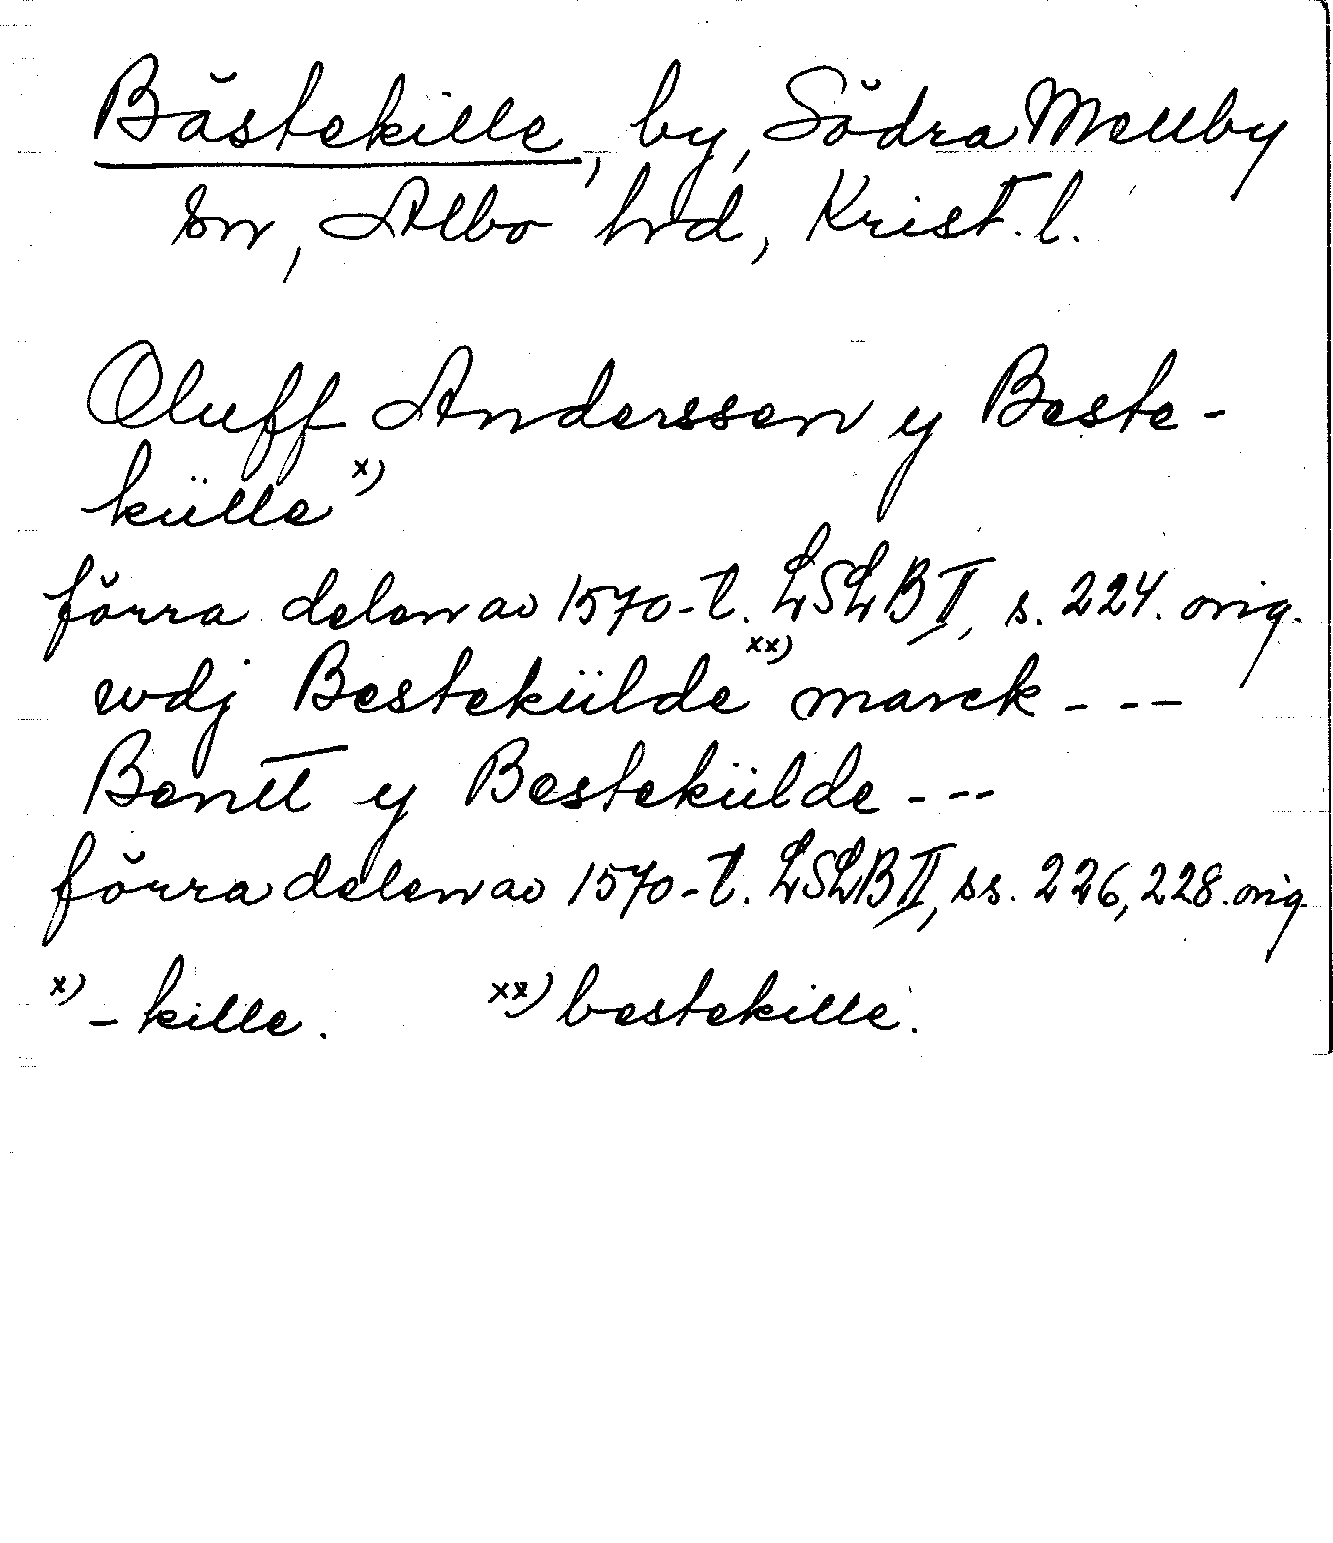 Bästekille, by, Södra Mellby
sn, Albo hrd, Krist. l.
Oluff Anderssen y Beste-
külle x)
förra delen av 1570-t. LSLB II, s. 224. orig.
wdj Bestekülde xx) marck - - -
Bentt y Bestekülde - - -
förra delen av 1570-t. LSLB II, ss. 226, 228. orig
x) - kille. xx) bestekille.